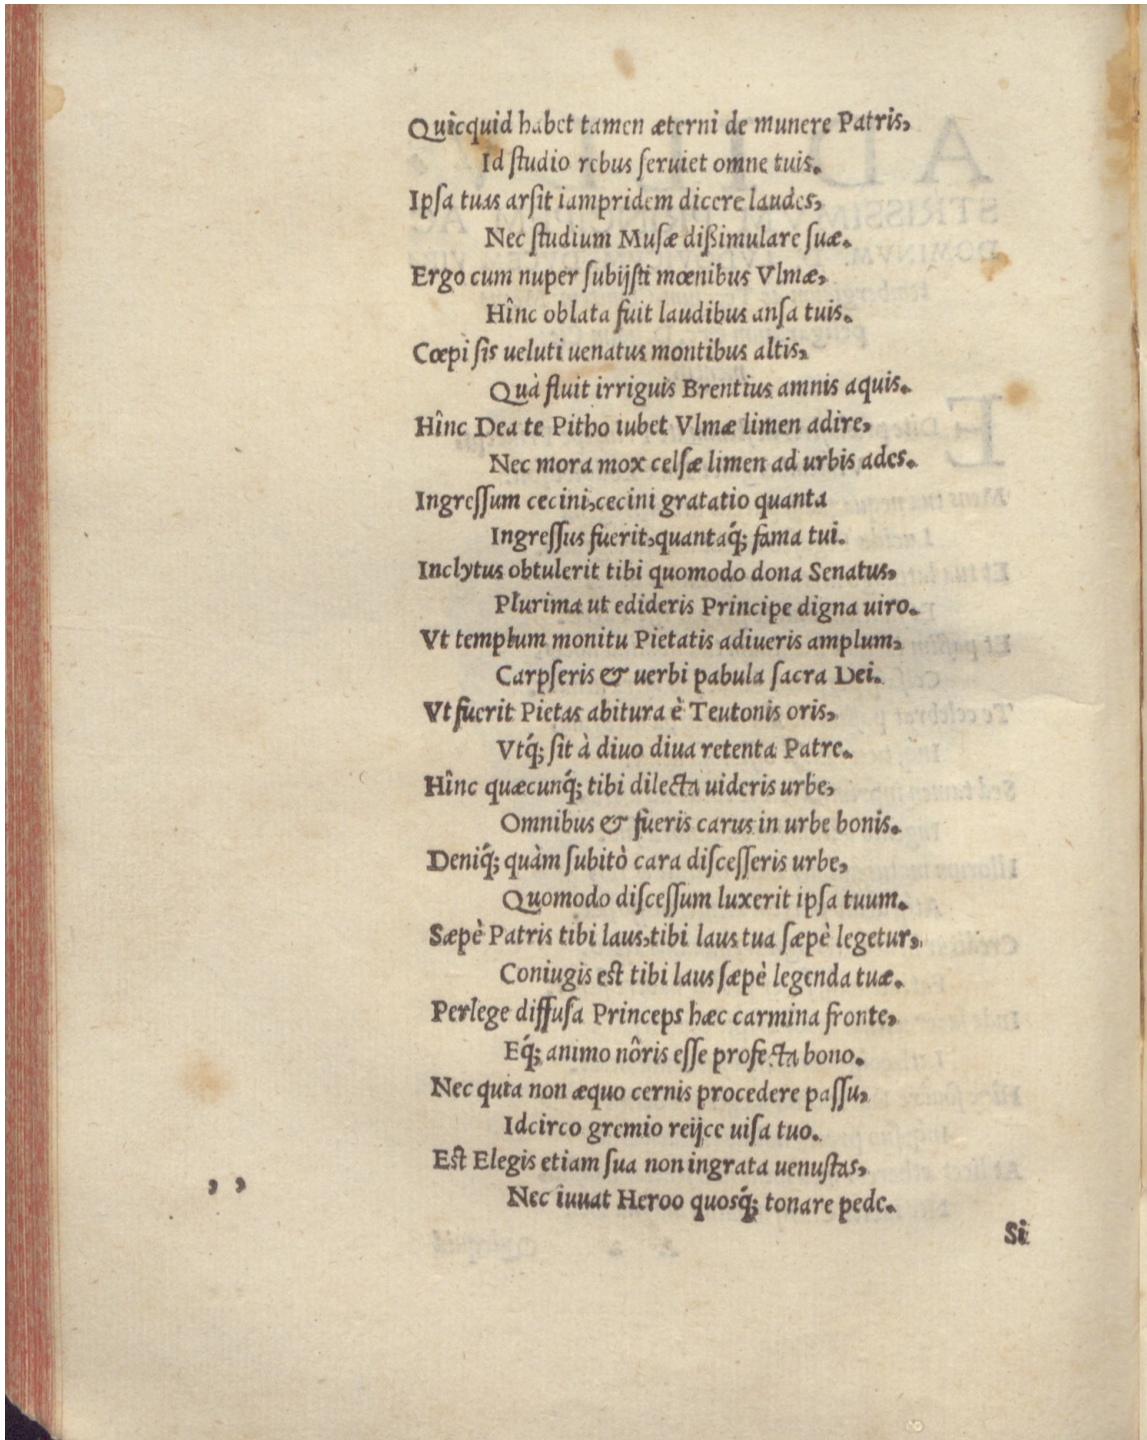 Quicquid habet tamen æterni de munere Patris,
Id ſtudio rebus ſeruiet omne tuis.
Ipſa tuas arſit iampridem dicere laudes,
Nec ſtudium Muſæ diſsimulare ſuæ.
Ergo cum nuper ſubijſti mœnibus Vlmæ,
Hînc oblata fuit laudibus anſa tuis.
Cœpi ſis ueluti uenatus montibus altis,
Quà fluit irriguis Brentius amnis aquis.
Hînc Dea te Pitho iubet Vlmæ limen adire,
Nec mora mox celſæ limen ad urbis ades.
Ingreſſum cecini, cecini gratatio quanta
Ingreſſus fuerit, quantaq́; fama tui.
Inclytus obtulerit tibi quomodo dona Senatus,
Plurima ut edideris Principe digna uiro.
Vt templum monitu Pietatis adiueris amplum,
Carpſeris & uerbi pabula ſacra Dei.
Vt fuerit Pietas abitura è Teutonis oris,
Vtq́; ſit à diuo diua retenta Patre.
Hînc quæcunq́; tibi dilecta uideris urbe,
Omnibus & fueris carus in urbe bonis.
Deniq́; quàm ſubitò cara diſceſſeris urbe,
Quomodo diſceſſum luxerit ipſa tuum.
Sæpè Patris tibi laus, tibi laus tua ſæpè legetur,
Coniugis eſt tibi laus ſæpè legenda tuæ.
Perlege diffuſa Princeps hæc carmina fronte,
Eq́; animo nôris eſſe profecta bono.
Nec quia non æquo cernis procedere paſſu,
Idcirco gremio reijce uiſa tuo.
Eſt Elegis etiam ſua non ingrata uenuſtas,
, , Nec iuuat Heroo quosq́; tonare pede.
Si